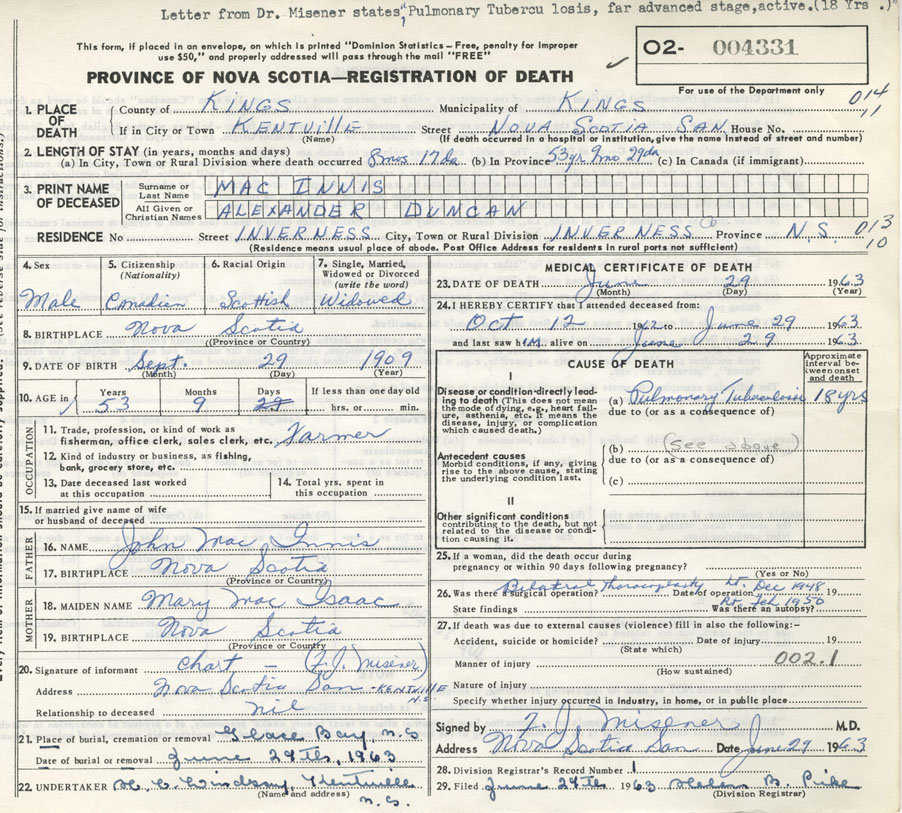 Letter from Dr. Misener states "Pulmonary Tubercu losis, far advanced stage, active. (18 Yrs .)"
This form, if placed in an envelope, on which is printed "Dominion Statistics—Free, penalty for improper
use $50," and properly addressed will pass through the mail "FREE"
O2- 004331
PROVINCE OF NOVA SCOTIA—REGISTRATION OF DEATH
For use of the Department only
014
11
1. PLACE OF DEATH County of KINGS Municipality of KINGS
If in City or Town KENTVILLE Street NOVA SCOTIA SAN House No.
(Name) (If death occurred in a hospital or institution, give the name instead of street and number)
2. LENGTH OF STAY (in years, months and days)
(a) In City, Town or Rural Division where death occurred 8 mos 17 da (b) In Province 53 yr 9 mo 29 da (c) In Canada (if immigrant)
3. PRINT NAME OF DECEASED Surname or Last Name MAC INNIS
All Given or Christian Names ALEXANDER DUNCAN
RESIDENCE No Street INVERNESS City, Town or Rural Division INVERNESS Province N.S. 013
10
(Residence means usual place of abode. Post Office Address for residents in rural parts not sufficient)
4. Sex Male
5. Citizenship (Nationality) Canadian
6. Racial Origin Scottish
7. Single, Married, Widowed or Divorced (write the word) Widowed
8. BIRTHPLACE Nova Scotia
(Province or Country)
9. DATE OF BIRTH Sept. 29 1909
(Month) (Day) (Year)
10. AGE in Years 53 Months 9 Days If less than one day old hrs. or min.
OCCUPATION
11. Trade, profession, or kind of work as
fisherman, office clerk, sales clerk, etc. Farmer
12. Kind of industry or business, as fishing,
bank, grocery store, etc.
13. Date deceased last worked
at this occupation
14. Total yrs. spent in
this occupation
15. If married give name of wife
or husband of deceased
FATHER
16. NAME John Mac Innis
17. BIRTHPLACE Nova Scotia
(Province or Country)
MOTHER
18. MAIDEN NAME Mary Mac Isaac
19. BIRTHPLACE Nova Scotia
(Province or Country)
20. Signature of informant Chart - (F.J. Misener)
Address Nova Scotia San - KENTVILLE
N.S.
Relationship to deceased nil
21. Place of burial, cremation or removal Glace Bay, N.S.
Date of burial or removal June 29th, 1963
22. UNDERTAKER Windsor, Kentville
(Name and address) N.S.
MEDICAL CERTIFICATE OF DEATH
23. DATE OF DEATH June 29 1963
(Month) (Day) (Year)
24. I HEREBY CERTIFY that I attended deceased from:
Oct 12 1962 to June 29 1963
and last saw him alive on June 29 1963
CAUSE OF DEATH
Approximate interval between onset and death
I
Disease or condition directly leading to death (This does not mean the mode of dying, e.g., heart failure, asthenia, etc. It means the disease, injury, or complication which caused death.)
(a) Pulmonary Tuberculosis 18 yrs
due to (or as a consequence of)
Antecedent causes
Morbid conditions, if any, giving rise to the above cause, stating the underlying condition last.
(b) (see above)
due to (or as a consequence of)
(c)
II
Other significant conditions
contributing to the death, but not related to the disease or condition causing it.
25. If a woman, did the death occur during
pregnancy or within 90 days following pregnancy?
(Yes or No)
Bilateral Thoracoplasty Lt. Dec 1948
26. Was there a surgical operation? Date of operation 19
Rt. Feb 1950
State findings Was there an autopsy?
27. If death was due to external causes (violence) fill in also the following:-
Accident, suicide or homicide? Date of injury 19
(State which)
Manner of injury 002.1
(How sustained)
Nature of injury
Specify whether injury occurred in industry, in home, or in public place
Signed by F. J. Misener M.D.
Address Nova Scotia San Date June 29 1963
28. Division Registrar's Record Number
29. Filed June 29th 1963 Helen B. Pike
(Division Registrar)